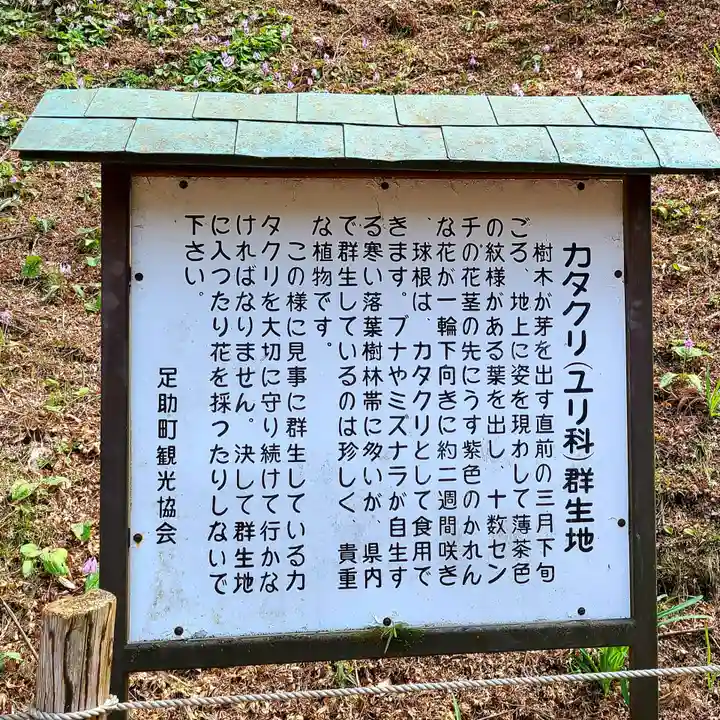 カタクリ(ユリ科)群生地
樹木が芽を出す直前の三月下旬
ごろ、地上に姿を現わして薄茶色
の紋様がある葉を出し、十数セン
チの花茎の先にうす紫色のかれん
な花が一輪下向きに約二週間咲き
、球根は、カタクリとして食用で
きます。ブナやミズナラが自生す
る寒い落葉樹林帯に多いが、県内
で群生しているのは珍しく、貴重
な植物です。
この様に見事に群生しているカ
タクリを大切に守り続けて行かな
ければなりません。決して群生地
に入つたり花を採つたりしないで
下さい。
足助町観光協会